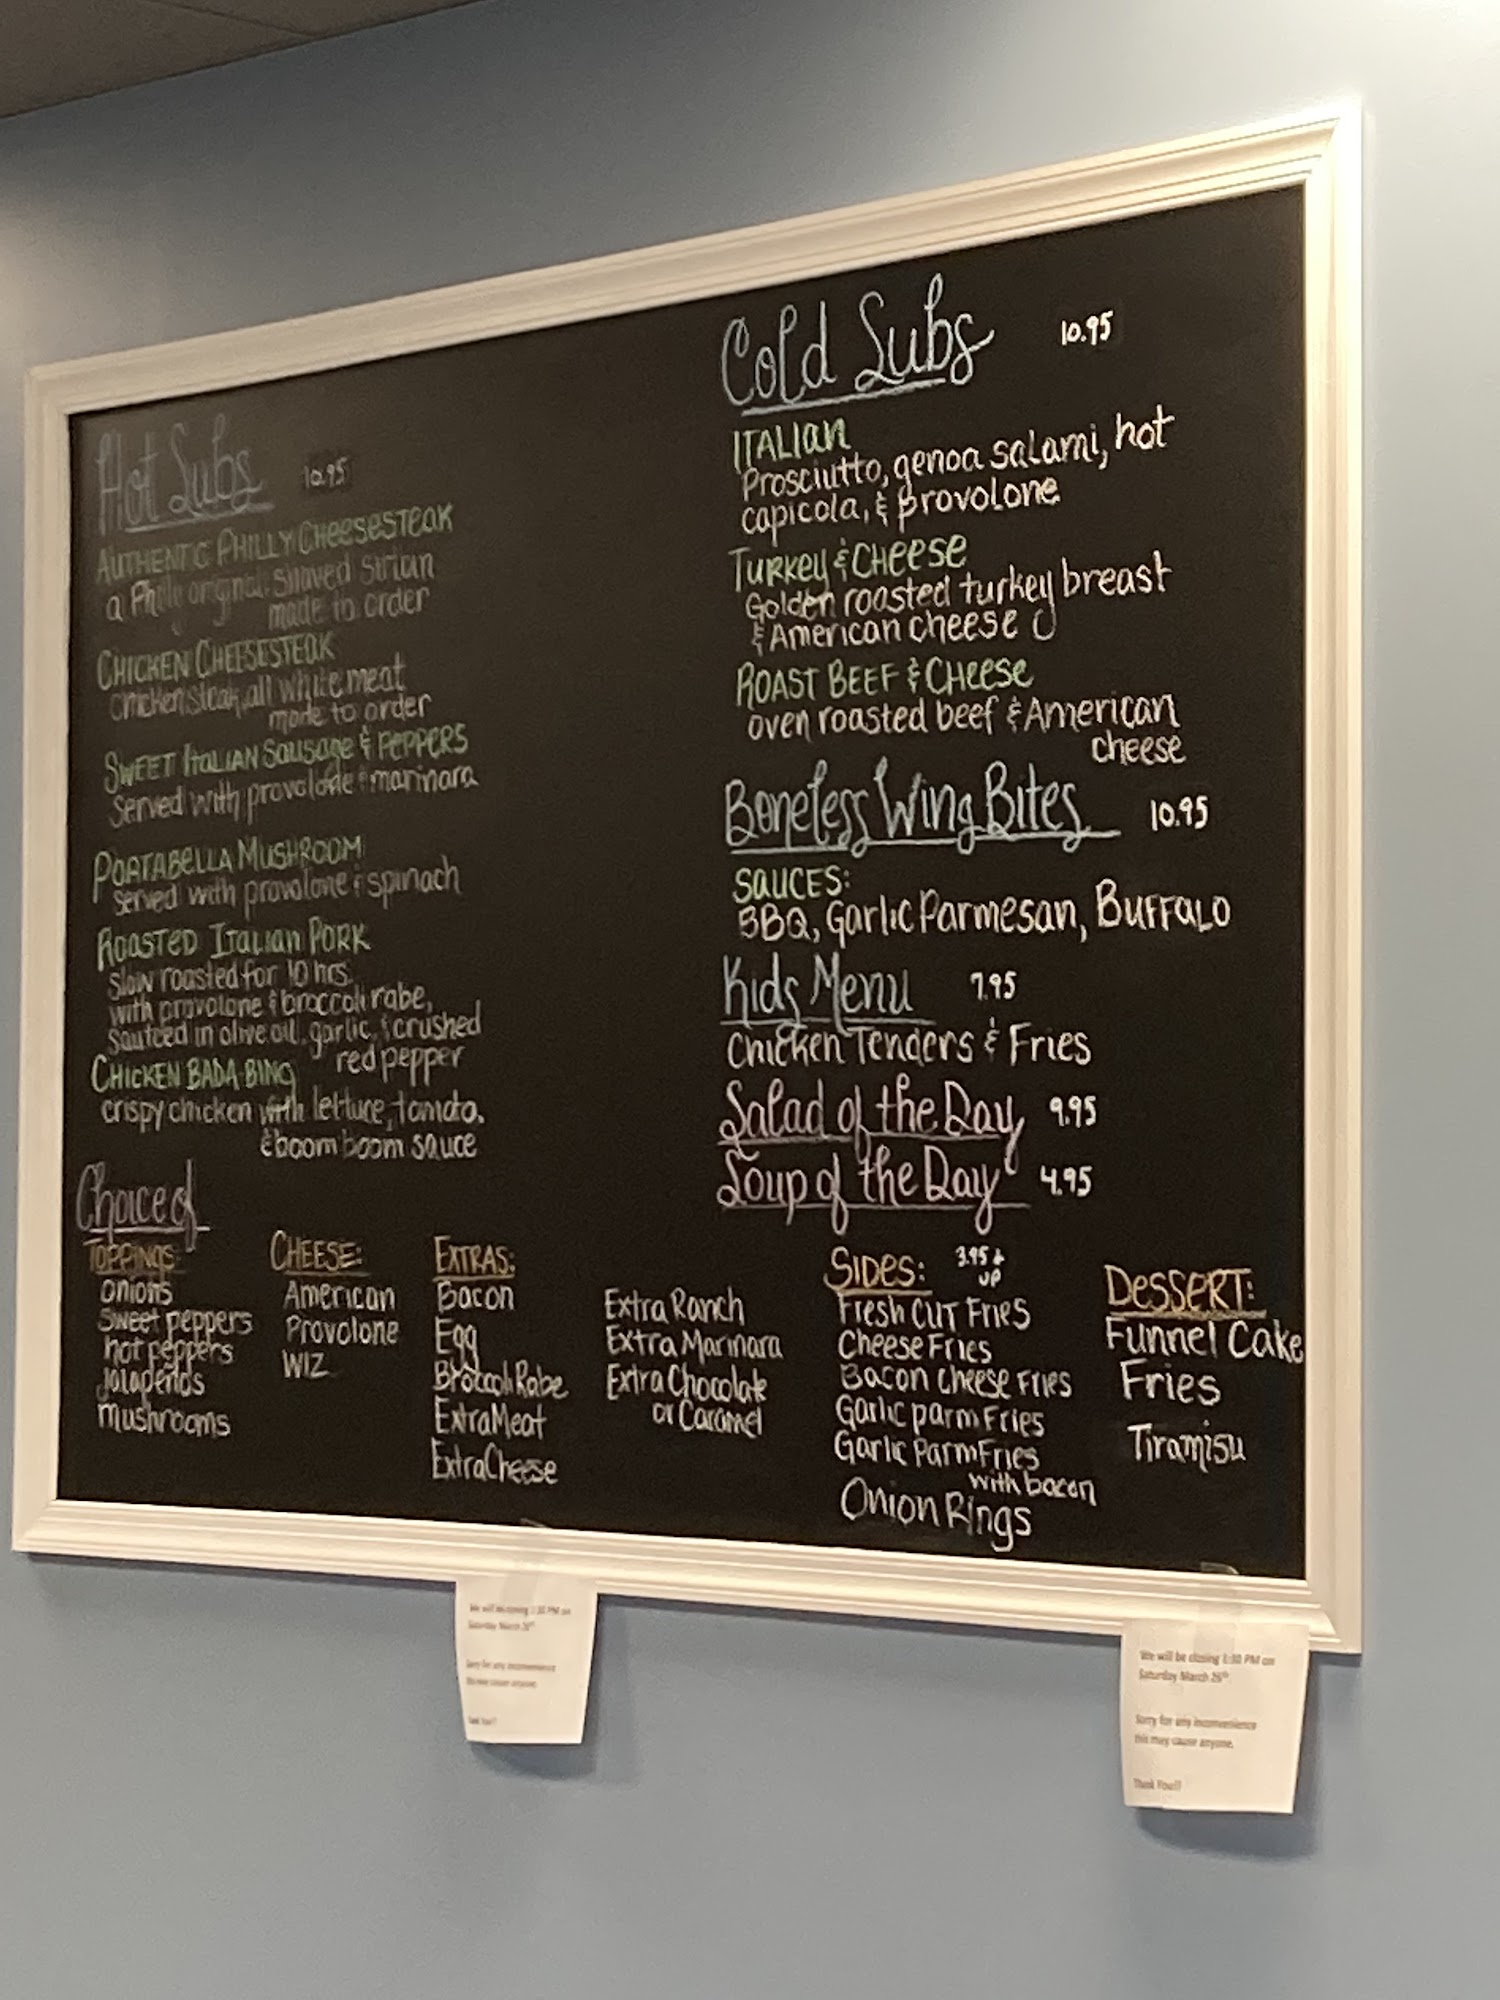 Hot Subs 10.95
AUTHENTIC PHILLY CHEESESTEAK
a Philly original, shaved sirlian
made to order
CHICKEN CHEESESTEAK
chicken steak, all white meat
made to order
SWEET ITALIAN SAUSAGE & PEPPERS
served with provolone & marinara
PORTABELLA MUSHROOM
served with provolone & spinach
ROASTED ITALIAN PORK
slow roasted for 10 hrs.
with provolone & broccoli rabe,
sauteed in olive oil, garlic, & crushed
red pepper
CHICKEN BADA-BING
crispy chicken with lettuce, tomato,
& boom boom sauce
Choice of
TOPPINGS:
onions
sweet peppers
hot peppers
jalapenos
mushrooms
CHEESE:
American
Provolone
WIZ
EXTRAS:
Bacon
Egg
Broccoli Rabe
Extra Meat
Extra Cheese
Extra Ranch
Extra Marinara
Extra Chocolate
or Caramel
Cold Subs 10.95
ITALIAN
Prosciutto, genoa salami, hot
capicola, & provolone
TURKEY & CHEESE
Golden roasted turkey breast
& American cheese
ROAST BEEF & CHEESE
oven roasted beef & American
cheese
Boneless Wing Bites 10.95
SAUCES:
BBQ, Garlic Parmesan, BUFFALO
Kids Menu 7.95
Chicken Tenders & Fries
Salad of the Day 9.95
Soup of the Day 4.95
SIDES: 3.95 &
UP
FRESH CUT FRIES
Cheese Fries
Bacon cheese FRIES
Garlic parm Fries
Garlic Parm Fries
with bacon
Onion Rings
DESSERT:
Funnel Cake
Fries
Tiramisu
We will be closing 1:30 PM on
Saturday March
Sorry for any inconvenience
this may cause anyone.
We will be closing 1:30 PM on
Saturday March
Sorry for any inconvenience
this may cause anyone.
Thank You!!